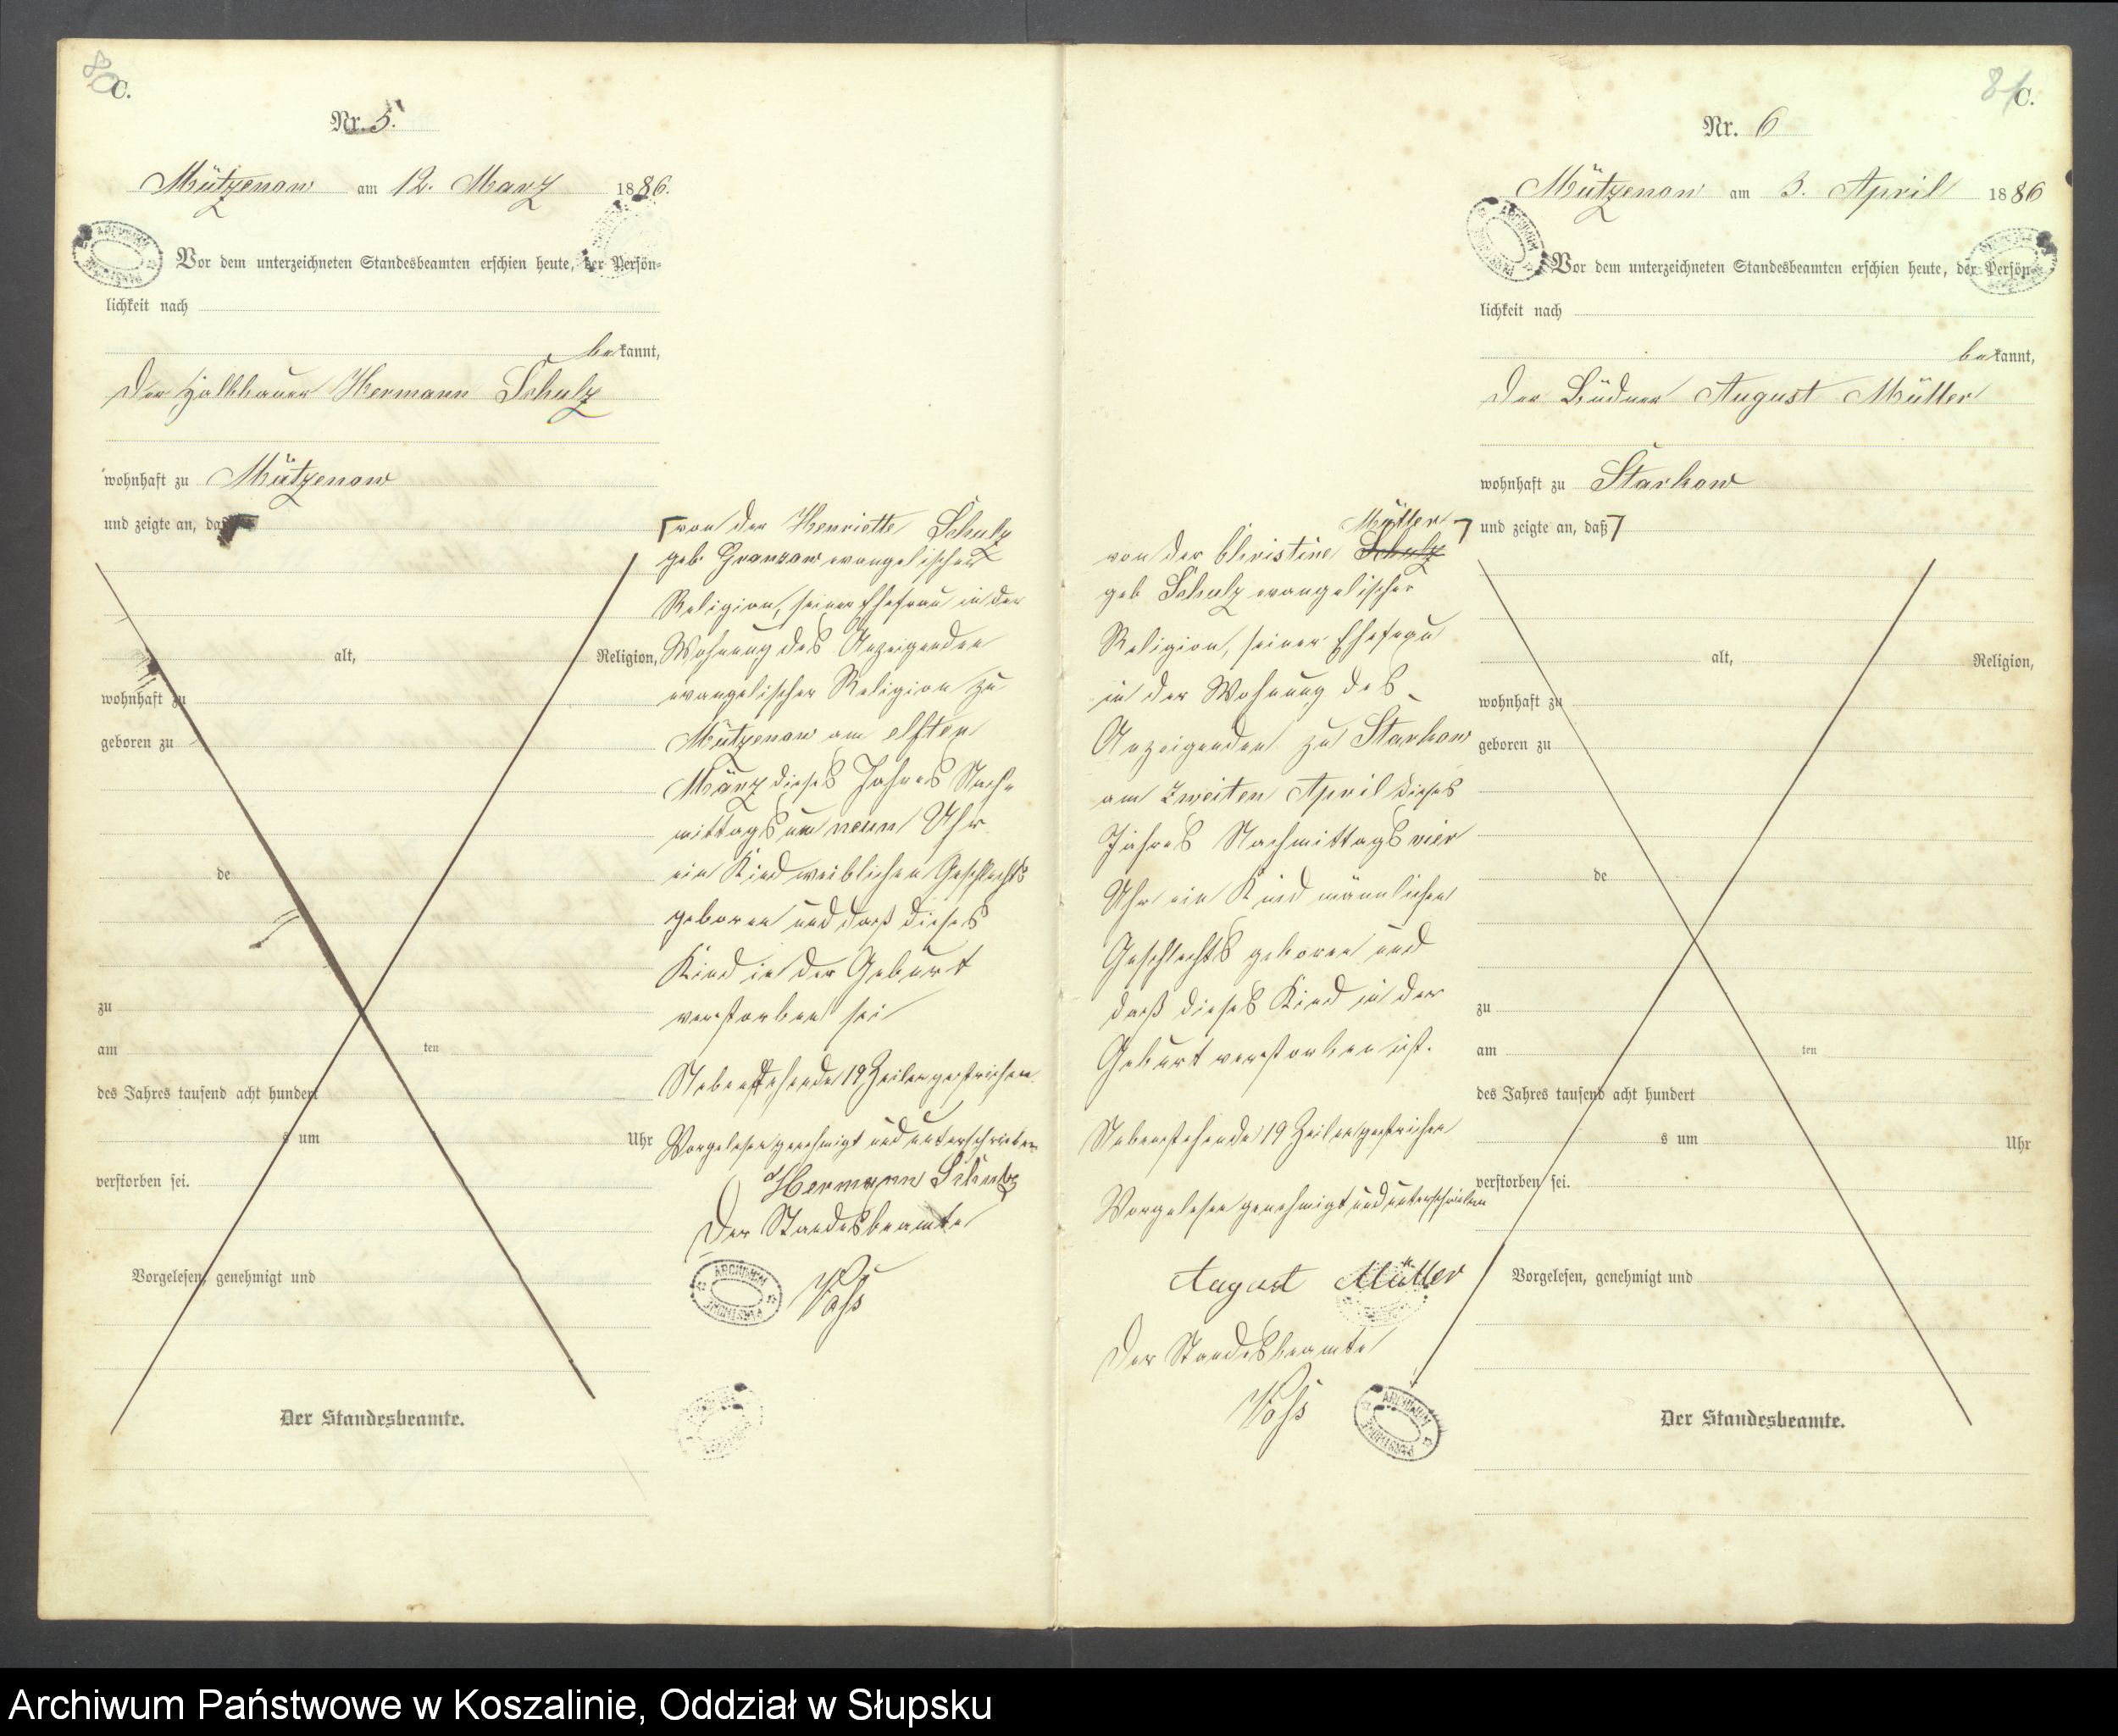 80
C.
Nr. 5.
Mützenow am 12. Marz 1886.
Vor dem unterzeichneten Standesbeamten erschien heute, der Persön-
lichkeit nach
bekannt,
der Halbbauer Hermann Schulz
wohnhaft zu Mützenow
und zeigte an, daß
alt, Religion,
wohnhaft zu
geboren zu
de
zu
am ten
des Jahres tausend acht hundert
s um Uhr
verstorben sei.
Vorgelesen, genehmigt und
Der Standesbeamte.
von der Henriette Schulz
geb. Granzow evangelischer
Religion, seiner Ehefrau in der
Wohnung des Anzeigenden
evangelischer Religion zu
Mützenow am elften
März dieses Jahres Nach-
mittags um neun Uhr
ein Kind weiblichen Geschlechts
geboren und daß dieses
Kind in der Geburt
verstorben sei
Nebenstehende 19 Zeilen gestrichen
Vorgelesen genehmigt und unterschrieben
Hermann Schulz
Der Standesbeamte
Voss
ARCHIWUM
81
C.
Nr. 6
Mützenow am 3. April 1886
Vor dem unterzeichneten Standesbeamten erschien heute, der Persön-
lichkeit nach
bekannt,
der Büdner August Müller
wohnhaft zu Starkow
und zeigte an, daß
Müller
von der Christine Schulz
geb Schulz evangelischer
Religion, seiner Ehefrau
in der Wohnung des
Anzeigenden zu Starkow
am zweiten April dieses
Jahres Nachmittags vier
Uhr ein Kind männlichen
Geschlechts geboren und
daß dieses Kind in der
Geburt verstorben ist.
Nebenstehende 19 Zeilen gestrichen
Vorgelesen genehmigt und unterschrieben
August Müller
Der Standesbeamte
Voss
ARCHIWUM
alt, Religion,
wohnhaft zu
geboren zu
de
zu
am ten
des Jahres tausend acht hundert
s um Uhr
verstorben sei.
Vorgelesen, genehmigt und
Der Standesbeamte.
Archiwum Państwowe w Koszalinie, Oddział w Słupsku